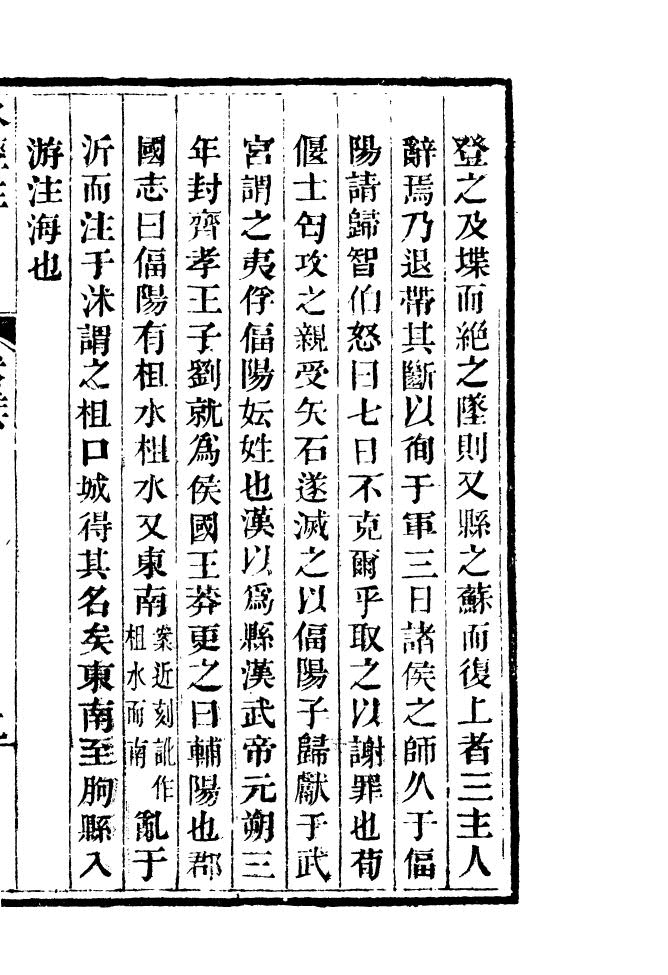 登之及堞而絶之墜則又縣之蘇而復上者三主人
辭焉乃退帶其斷以徇于軍三日諸侯之師久于偪
陽請歸智伯怒曰七日不克爾乎取之以謝罪也荀
偃士匄攻之親受矢石遂滅之以偪陽子歸獻于武
宫謂之夷俘偪陽妘姓也漢以爲縣漢武帝元朔三
年封齊孝王子劉就爲侯國王莽更之曰輔陽也郡
國志曰偪陽有柤水柤水又東南案近刻訛作柤水而南亂于
沂而注于沭謂之柤口城得其名矣東南至朐縣入
游注海也
水經注